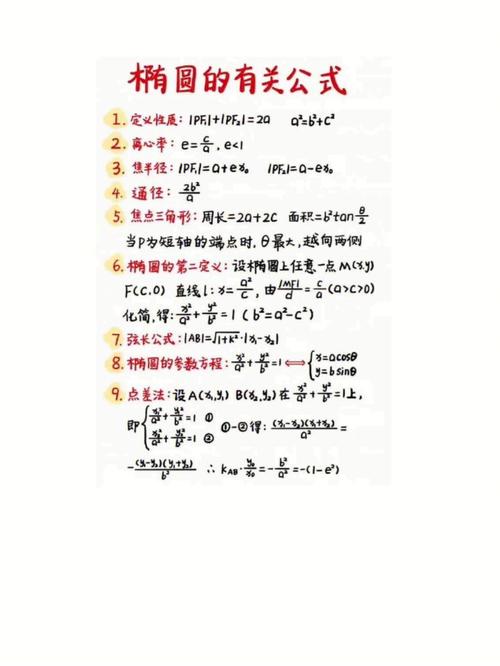 椭圆的有关公式
1. 定义性质: |PF₁|+|PF₂|=2a a²=b²+c²
2. 离心率: e=c/a, e<1
3. 焦半径: |PF₁|=a+ex₀ |PF₂|=a-ex₀
4. 通径: 2b²/a
5. 焦点三角形: 周长=2a+2c 面积=b²tan θ/2
当P为短轴的端点时,θ最大,越向两侧
6. 椭圆的第二定义: 设椭圆上任意一点M(x,y)
F(c,0) 直线l: x=a²/c, 由|MF|/d=c/a(a>c>0)
化简,得: x²/a²+y²/b²=1 (b²=a²-c²)
7. 弦长公式: |AB|=√(1+k²)·|x₁-x₂|
8. 椭圆的参数方程: x²/a²+y²/b²=1 ⟺ {x=acosθ
y=bsinθ
9. 点差法: 设A(x₁,y₁) B(x₂,y₂)在x²/a²+y²/b²=1上,
即{x₁²/a²+y₁²/b²=1 ①
x₂²/a²+y₂²/b²=1 ②
①-②得: (x₁-x₂)(x₁+x₂)/a²=
-(y₁-y₂)(y₁+y₂)/b² ∴ kAB·y₀/x₀=-b²/a²=-(1-e²)